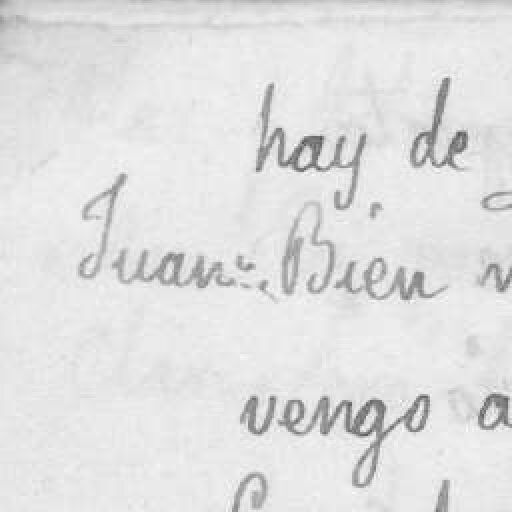 hay de
Juan: Bien
vengo a